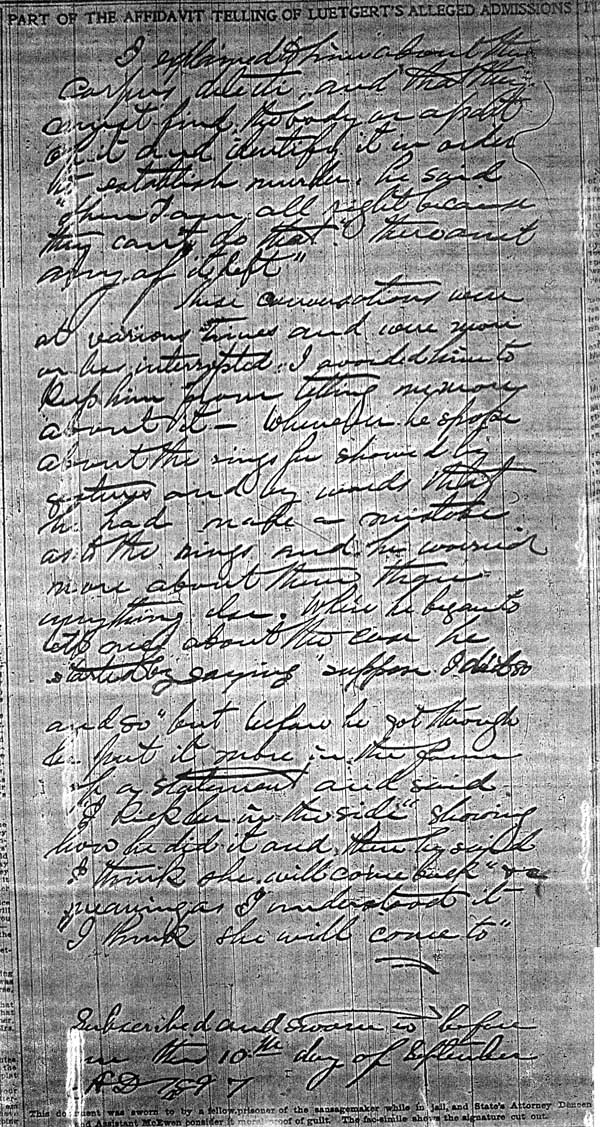 PART OF THE AFFIDAVIT TELLING OF LUETGERT'S ALLEGED ADMISSIONS
I explained to him about the
corpus delicti, and that they
must find the body or a part
of it and identify it in order
to establish murder. he said
"then I am all right because
they can't do that." "there aint
any of it left"
These conversations were
at various times and were more
or less interrupted. I avoided him to
keep him from telling
about it — Whenever he spoke
about the rings he showed by
gestures and by words that
he had made a mistake
as to the rings and he worried
more about them than
anything else. When he began to
tell me about the case he
started by saying "suppose I did so
and so" but before he got through
he put it more in the form
of a statement and said
"I kick her in the side" showing
how he did it and then he said
I think she will come back"
meaning as I understood it
"I think she will come to"
Subscribed and sworn to before
me this 10th day of September
A D 1897
This document was sworn to by a fellow prisoner of the sausagemaker while in jail, and State's Attorney Deneen
and Assistant McEwen consider it moral proof of guilt. The fac-simile shows the signature cut out.